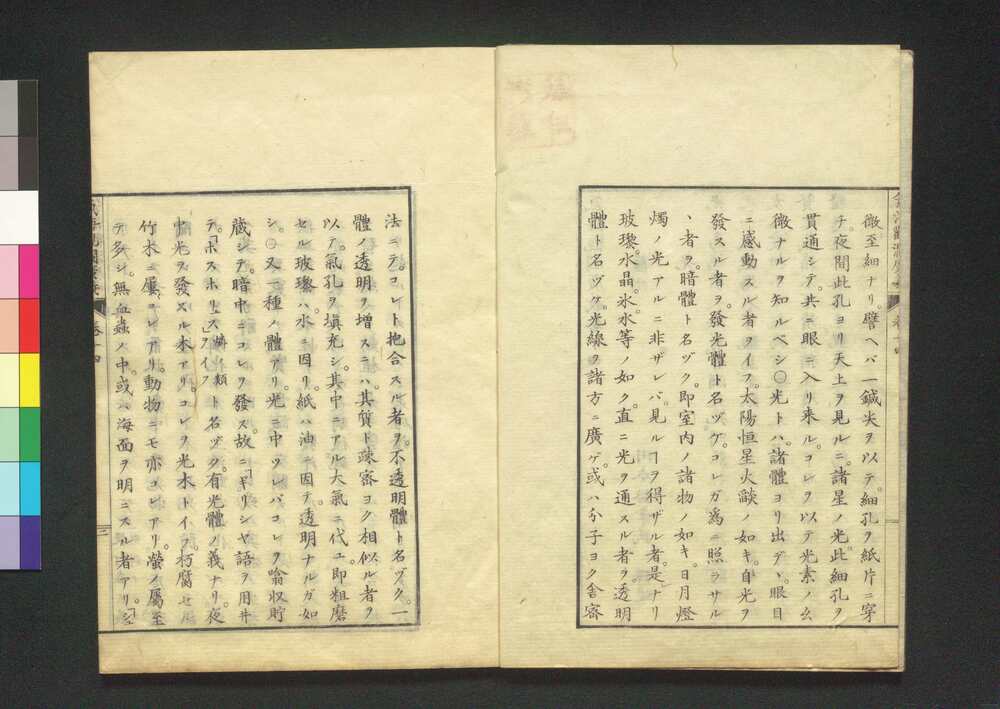 微至細ナリ。譬ヘバ一鍼尖ヲ以テ。細孔ヲ紙片ニ穿
チ。夜間此孔ヨリ天上ヲ見ルニ。諸星ノ光此細孔ヲ
貫通シテ。共ニ眼ニ入リ来ル。コレヲ以テ光素ノ幺
微ナルヲ知ルベシ○光トハ。諸體ヨリ出デヽ。眼目
ニ感動スル者ヲイフ。太陽恒星火燄ノ如キ。自光ヲ
發スル者ヲ。發光體ト名ヅケ。コレガ為ニ照ラサル
ヽ者ヲ。暗體ト名ヅク。即室内ノ諸物ノ如キ。日月燈
燭ノ光アルニ非ザレバ。見ルヿヲ得ザル者。是ナリ
玻瓈。水晶。氷。水等ノ如ク。直ニ光ヲ通スル者ヲ。透明
體ト名ヅケ。光線ヲ諸方ニ廣ゲ。或ハ分子ヨク舎密
法ニテ。コレト抱合スル者ヲ。不透明體ト名ヅク。一
體ノ透明ヲ増スニハ。其質ト疎密ヨク相似ル者ヲ
以テ。氣孔ヲ塡充シ。其中ニアル大氣ニ代ユ。即粗磨
セル玻瓈ハ。水ニ因リ。紙ハ油ニ因テ。透明ナルガ如
シ。○又一種ノ體アリ。光ニ中ツレバ。コレヲ翕収貯
蔵シテ。暗中ニコレヲ發ス。故ニ「ギリシヤ語ヲ用井
テ。「ホスホリス」 ト名ヅク。有光體ノ義ナリ。夜
中光ヲ發スル木アリ。コレヲ光木トイフ。朽腐セル
竹木ニ。屢コレアリ。動物ニモ亦コレアリ。螢ノ屬至
テ多シ。無血蟲ノ中。或ハ海面ヲ明ニスル者アリ。「シ
卷十四
三